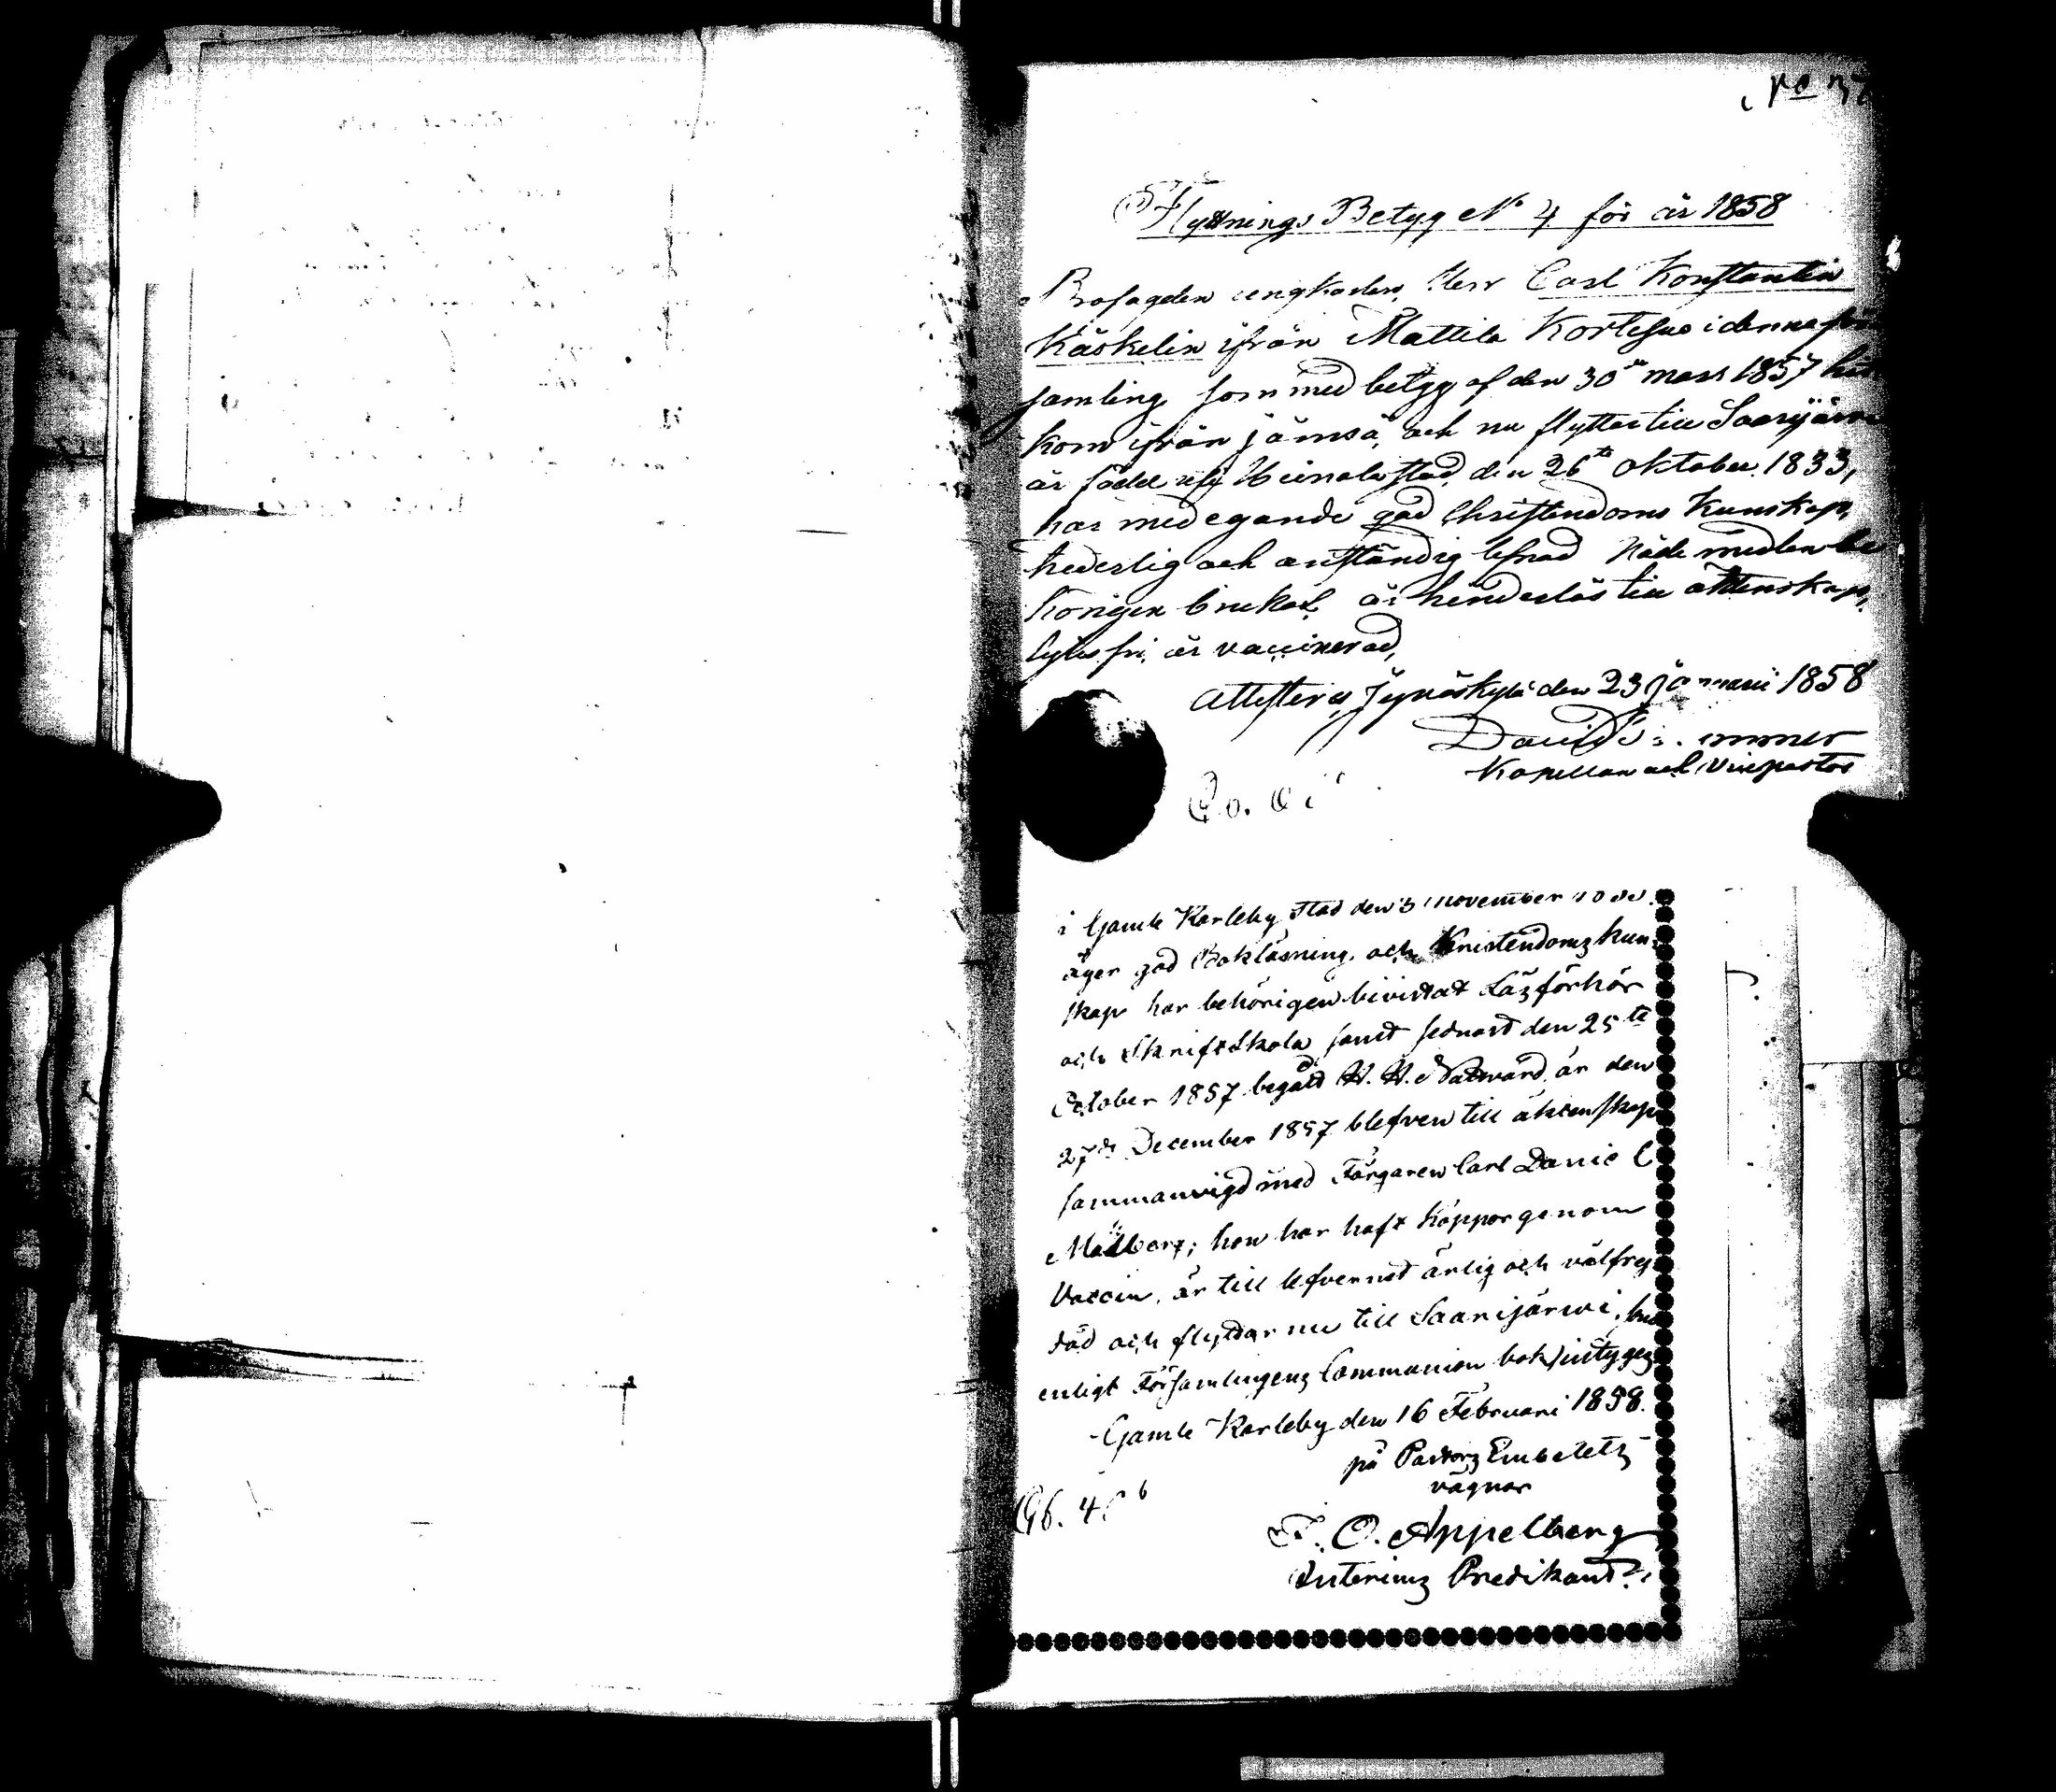 No 3
Flyttnings Betyg No 4 för år 1858
ungkarlen Herr Carl Konstantin
Käskelin ifrån Mattila Kortesuo i denna för
samling som med betyg af den 30de mars 1857 hit
kom ifrån Jämsä, och nu flyttar till Saarijärvi
är född uti Heinola stad den 26te oktober 1833,
har med egande god Christendoms kunskap,
hederlig och anständig lefnad Nåde medlen be
hörigen brukat, är hinderlös till äktenskap,
lytes fri, är vaccinerad,
attesterar, Jyväskylä den 23 Januari 1858
David
Kapellan och Vice pastor
i Gamle Karleby Stad den 3 november
äger god Bokläsning och Kristendoms kun-
skap har behörigen bivistat Läsförhör
och Skriftskola samt sednast den 25te
October 1857 begått H. H. Nattvard, är den
27de December 1857 blefven till äktenskap
sammanvigd med Färgaren Carl Daniel
hon har haft koppor genom
Vaccin, är till lefvernet ärlig och välfrej-
dad och flyttar nu till Saarijärwi,
enligt Församlingens Communion bok, intygas
Gamle Karleby den 16 Februari 1858.
på Pastors Embetets
vägnar
F. O. Appelberg
Interims Predikant